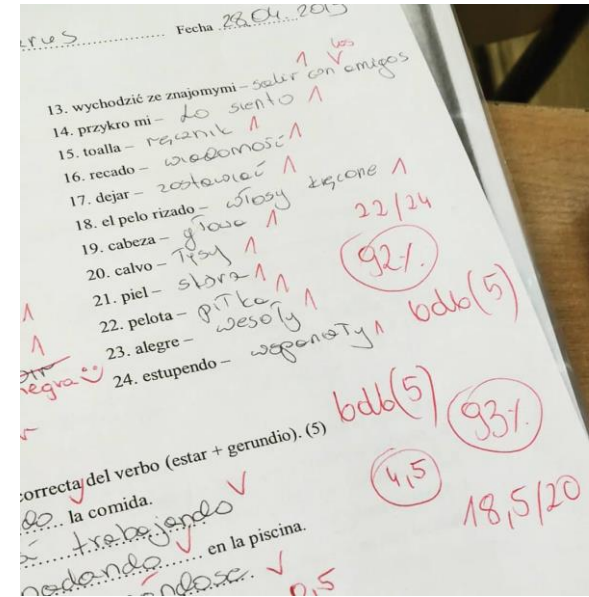 Fecha 28.04.2015
los
13. wychodzić ze znajomymi – salir con amigos 1
14. przykro mi – Lo siento 1
15. toalla – ręcznik 1
16. recado – wiadomość 1
17. dejar – zostawiać 1
18. el pelo rizado – włosy kręcone 1
19. cabeza – głowa 1
20. calvo – łysy 1
21. piel – skóra 1
22. pelota – piłka 1
23. alegre – wesoły 1
24. estupendo – wspaniały 1
22/24
92%
bdb(5)
negra
bdb(5)
93%
correcta del verbo (estar + gerundio). (5)
4,5
18,5/20
la comida.
trabajando
en la piscina.
0,5